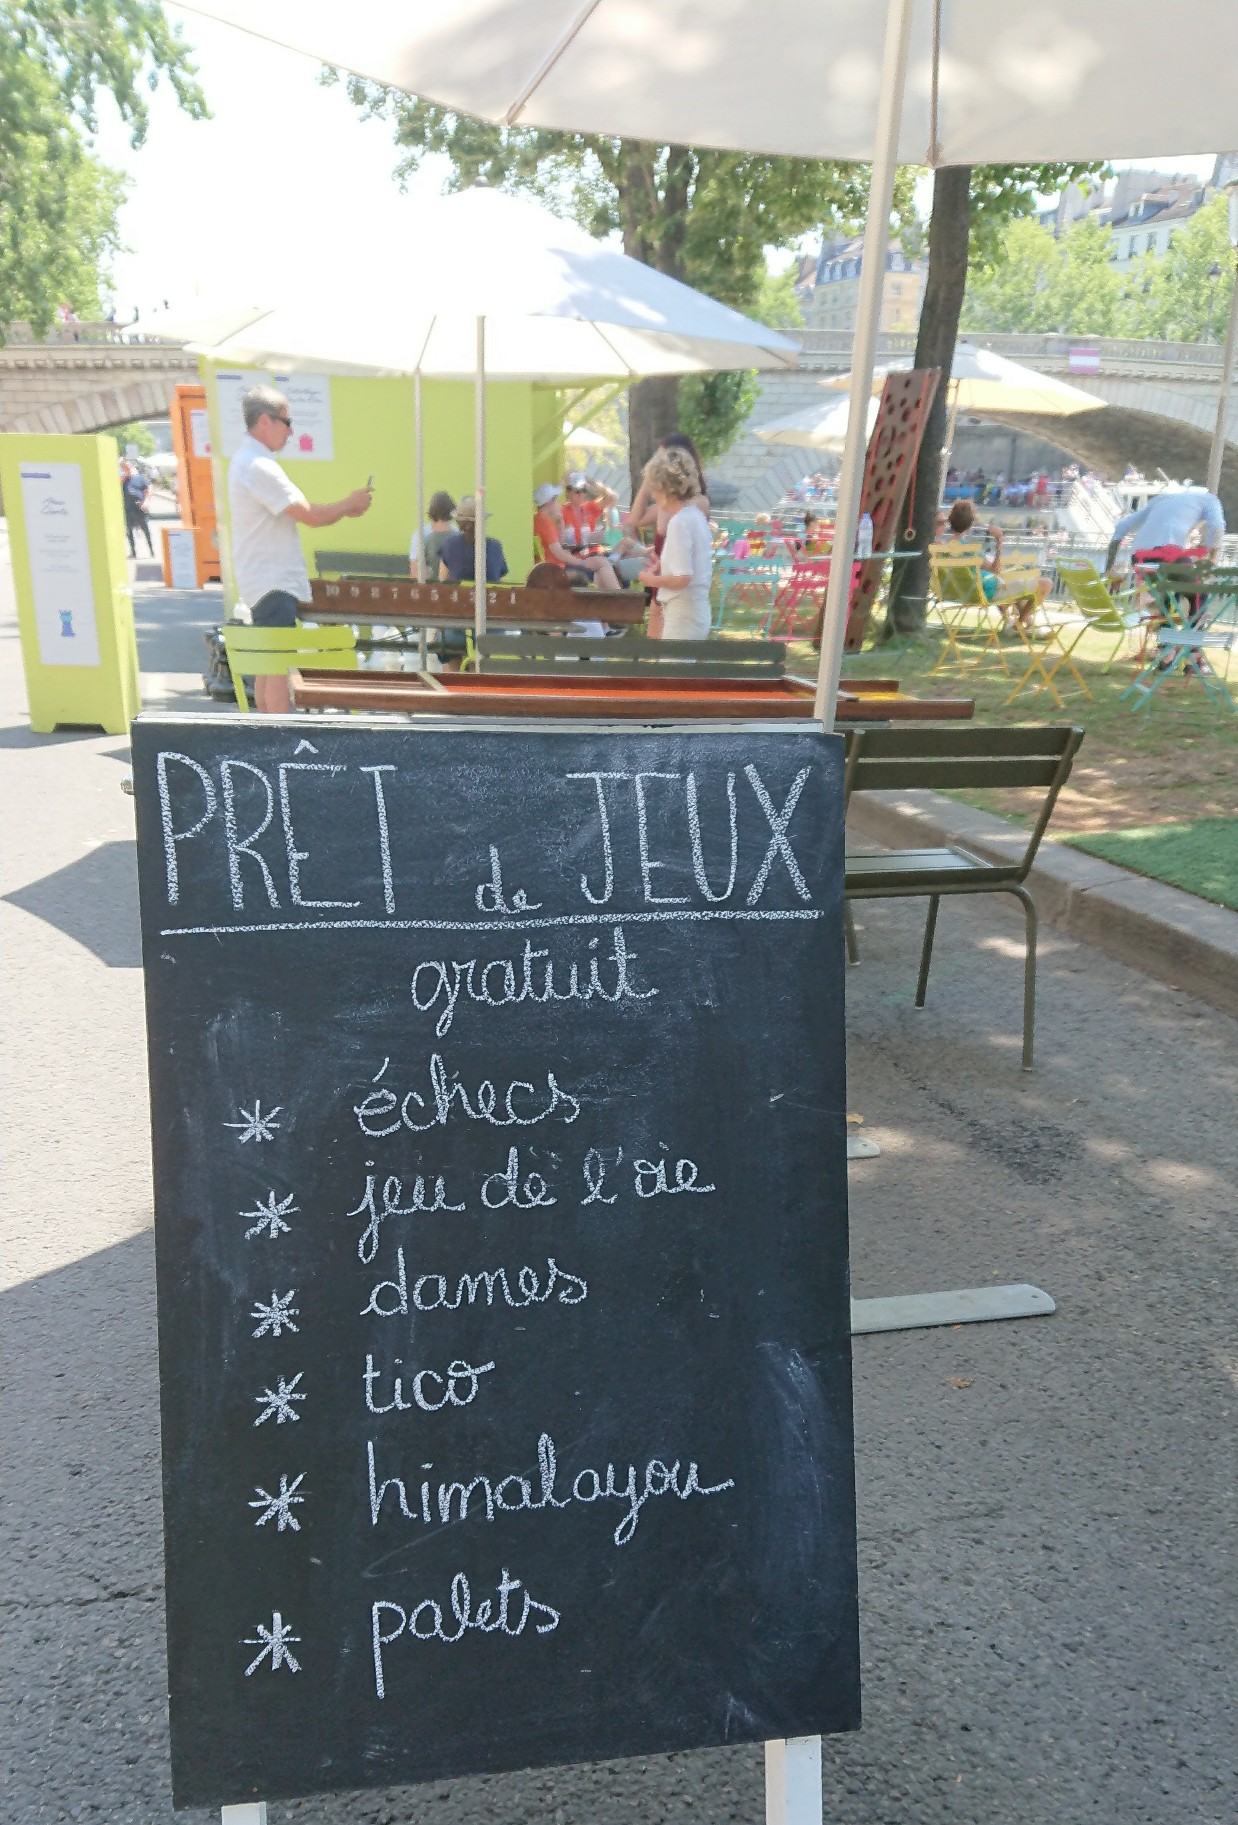 PRÊT de JEUX
gratuit
* échecs
* jeu de l'oie
* dames
* tico
* himalayou
* palets
10 9 8 7 6 5 4 3 2 1